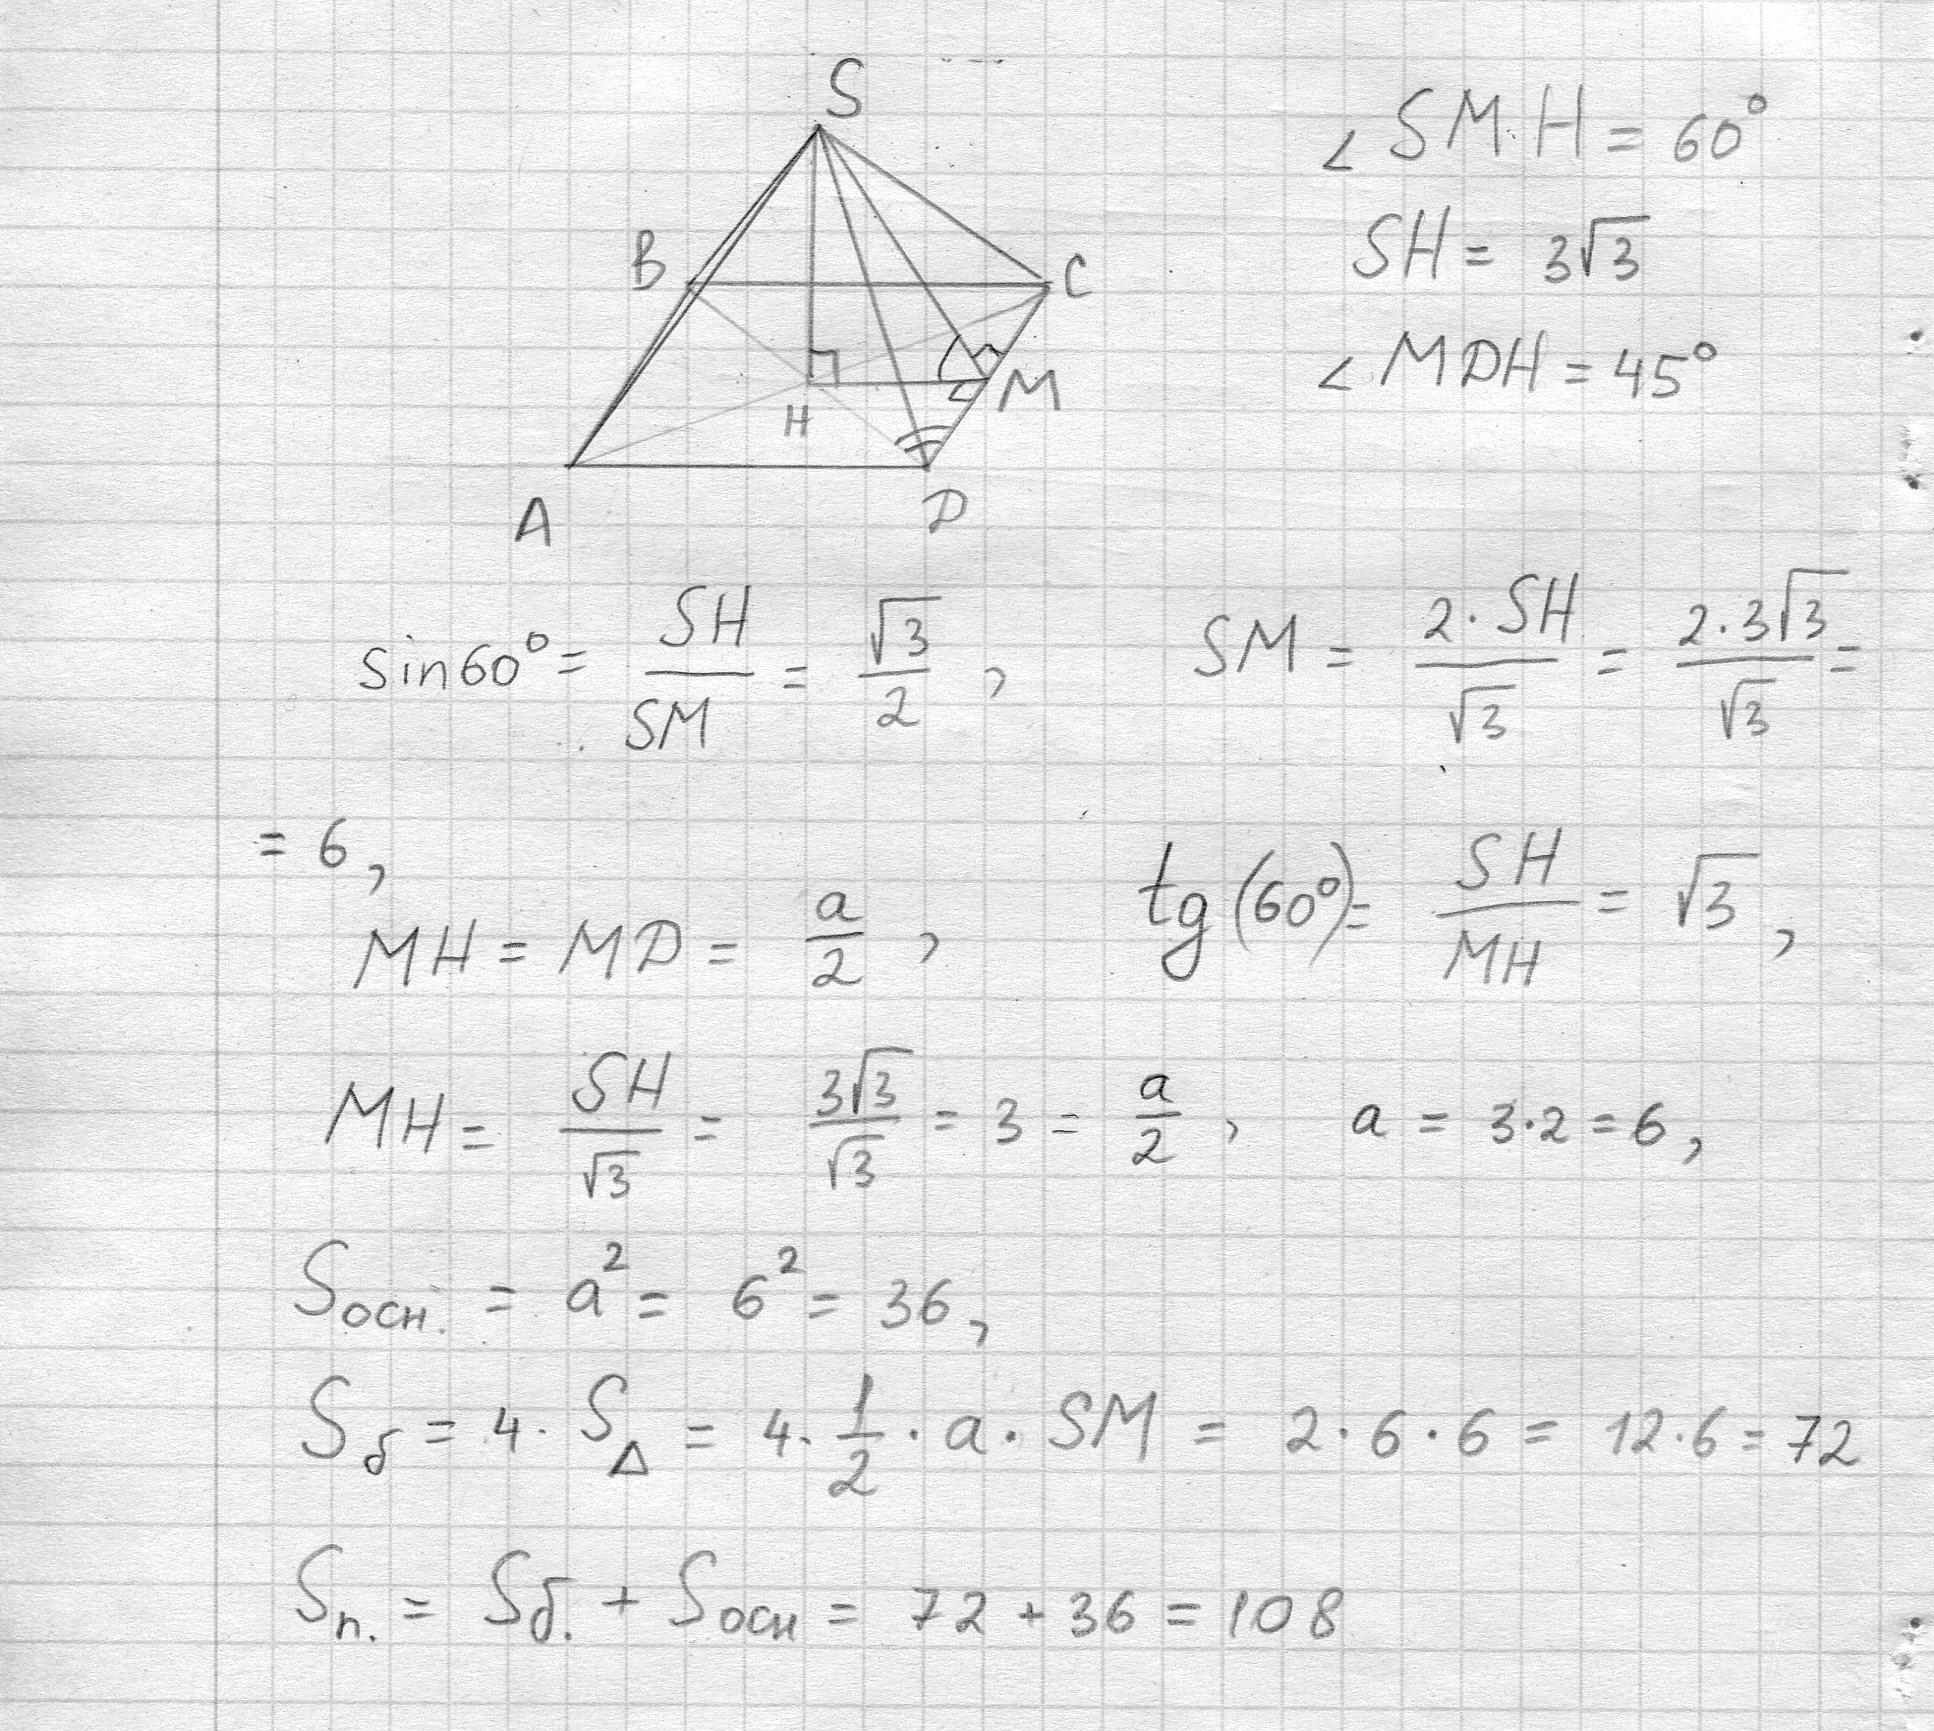 S
B
C
H
M
A
D
∠SMH = 60°
SH = 3√3
∠MDH = 45°
sin60° = SH/SM = √3/2, SM = 2·SH/√3 = 2·3√3/√3 =
= 6,
MH = MD = a/2, tg(60°) = SH/MH = √3,
MH = SH/√3 = 3√3/√3 = 3 = a/2, a = 3·2 = 6,
Sосн. = a² = 6² = 36,
Sб = 4·S△ = 4·1/2·a·SM = 2·6·6 = 12·6 = 72
Sп. = Sб. + Sосн = 72 + 36 = 108